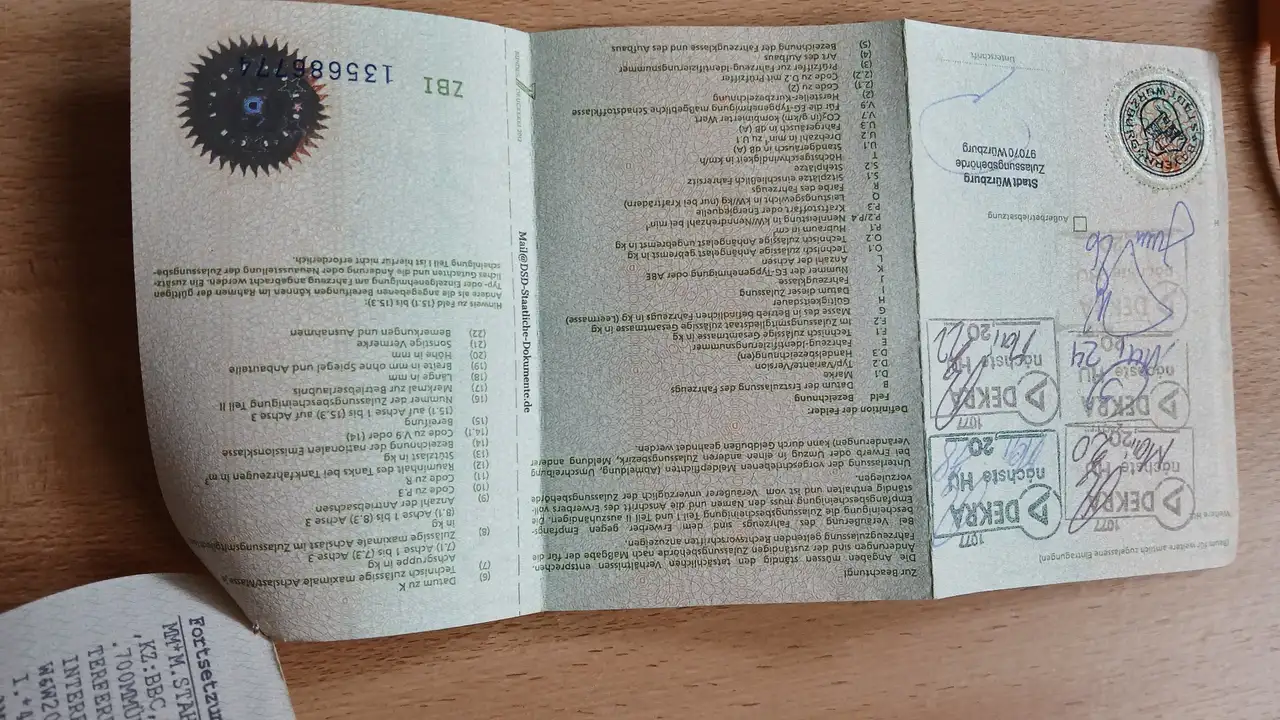 (Raum für weitere amtlich zugelassene Eintragungen)
Weitere HU
1077
DEKRA
nächste HU
Mai 2020
1077
DEKRA
nächste HU
20
DEKRA
nächste HU
Mai 24
1077
DEKRA
nächste HU
Mai 2022
DEKRA
Juni 26
H
Außerbetriebsetzung
Stadt Würzburg
Zulassungsbehörde
97070 Würzburg
Unterschrift
Zur Beachtung!
Die Angaben müssen ständig den tatsächlichen Verhältnissen entsprechen.
Änderungen sind der zuständigen Zulassungsbehörde nach Maßgabe der für die
Fahrzeugzulassung geltenden Rechtsvorschriften anzuzeigen.
Bei Veräußerung des Fahrzeugs sind dem Erwerber gegen Empfangs-
bescheinigung die Zulassungsbescheinigung Teil I und Teil II auszuhändigen. Die
Empfangsbescheinigung muss den Namen und die Anschrift des Erwerbers voll-
ständig enthalten und ist vom Veräußerer unverzüglich der Zulassungsbehörde
vorzulegen.
Unterlassung der vorgeschriebenen Meldepflichten (Abmeldung, Umschreibung
bei Erwerb oder Umzug in einen anderen Zulassungsbezirk, Meldung anderer
Veränderungen) kann durch Geldbußen geahndet werden.
Definition der Felder:
Feld Bezeichnung
B Datum der Erstzulassung des Fahrzeugs
D.1 Marke
D.2 Typ/Variante/Version
D.3 Handelsbezeichnung(en)
E Fahrzeug-Identifizierungsnummer
F.1 Technisch zulässige Gesamtmasse in kg
F.2 Im Zulassungsmitgliedstaat zulässige Gesamtmasse in kg
G Masse des in Betrieb befindlichen Fahrzeugs in kg (Leermasse)
H Gültigkeitsdauer
I Datum dieser Zulassung
J Fahrzeugklasse
K Nummer der EG-Typgenehmigung oder ABE
L Anzahl der Achsen
O.1 Technisch zulässige Anhängelast gebremst in kg
O.2 Technisch zulässige Anhängelast ungebremst in kg
P.1 Hubraum in cm³
P.2/P.4 Nennleistung in kW/Nenndrehzahl bei min⁻¹
P.3 Kraftstoffart oder Energiequelle
Q Leistungsgewicht in kW/kg (nur bei Krafträdern)
R Farbe des Fahrzeugs
S.1 Sitzplätze einschließlich Fahrersitz
S.2 Stehplätze
T Höchstgeschwindigkeit in km/h
U.1 Standgeräusch in dB (A)
U.2 Drehzahl in min⁻¹ zu U.1
U.3 Fahrgeräusch in dB (A)
V.7 CO₂(in g/km) kombinierter Wert
V.9 Für die EG-Typgenehmigung maßgebliche Schadstoffklasse
(2) Hersteller-Kurzbezeichnung
(2.1) Code zu (2)
(2.2) Code zu D.2 mit Prüfziffer
(3) Prüfziffer zur Fahrzeug-Identifizierungsnummer
(4) Art des Aufbaus
(5) Bezeichnung der Fahrzeugklasse und des Aufbaus
Mail@DSD-Staatliche-Dokumente.de
(6) Datum zu K
(7) Technisch zulässige maximale Achslast/Masse je
Achsgruppe in kg
(7.1) Achse 1 bis (7.3) Achse 3
(8) Zulässige maximale Achslast im Zulassungsmitgliedstaat
in kg
(8.1) Achse 1 bis (8.3) Achse 3
(9) Anzahl der Antriebsachsen
(10) Code zu P.3
(11) Code zu R
(12) Rauminhalt des Tanks bei Tankfahrzeugen in m³
(13) Stützlast in kg
(14) Bezeichnung der nationalen Emissionsklasse
(14.1) Code zu V.9 oder (14)
(15) Bereifung
(15.1) auf Achse 1 bis (15.3) auf Achse 3
(16) Nummer der Zulassungsbescheinigung Teil II
(17) Merkmal zur Betriebserlaubnis
(18) Länge in mm
(19) Breite in mm ohne Spiegel und Anbauteile
(20) Höhe in mm
(21) Sonstige Vermerke
(22) Bemerkungen und Ausnahmen
Hinweis zu Feld (15.1) bis (15.3):
Andere als die angegebenen Bereifungen können im Rahmen der gültigen
Typ- oder Einzelgenehmigung am Fahrzeug angebracht werden. Ein zusätz-
liches Gutachten und die Änderung oder Neuausstellung der Zulassungsbe-
scheinigung Teil I ist hierfür nicht erforderlich.
ZBI 135686774
Fortsetzun
MM*M.STAH
,KZ:BBC,
.70OMMÜ
TEREER
INTER
W&W20